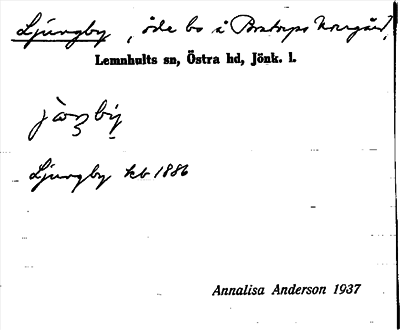 Ljungby, öde bo å Norrgård,
Lemnhults sn, Östra hd, Jönk. l.
Ljungby kb 1886
Annalisa Anderson 1937